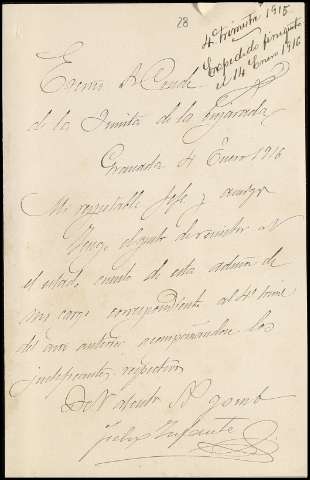 28
4º trimestre 1915
Expedido finiquito
el 14 Enero 1916
Excmo Sr Conde
de las Infantas de la
Granada 4 Enero 1916
Mi respetable Jefe y amigo
Tengo el gusto de remitir a V
el estado cuenta de esta admón de
mi cargo correspondiente al 4º trime
del año anterior acompañándose los
justificantes respectivos
De V atento S q b s m
Felix Infante